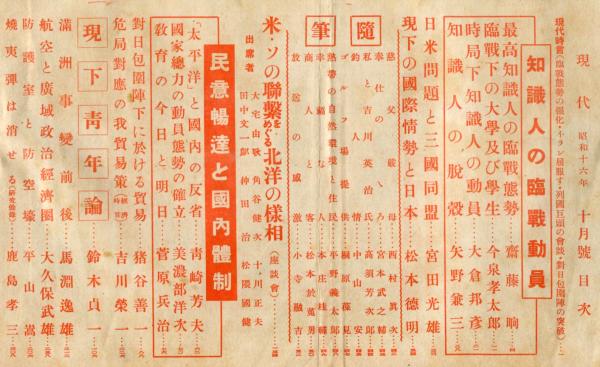 現代 昭和十六年 十月號目次
現代時言(臨戰態勢の強化・イラン屈服す・列國巨頭の會談・對日包圍陣の突破)
知識人の臨戰動員
最高知識人の臨戰態勢 齋藤晌
臨戰下の大學及び學生 今泉孝太郎
時局下知識人の動員 大倉邦彦
知識人の脫殼 矢野兼三
日米問題と三國同盟 宮田光雄
現下の國際情勢と日本 松本德明
隨筆
慈父の嚴母 西村眞次
奉仕の心 宮本武之輔
私と吉川英治氏 高須芳次郎
釣 中山安
ゴルフ場提供 桐原葆見
熱帶の自然環境と住民 平野義太郎
幸福な人 本庄陸男
商人と客 松本於菟男
放送の感激 小寺融吉
米・ソの聯繫をめぐる北洋の樣相(座談會)
出席者 大宅由耿 角谷健次 十川正夫
田中文一郎 仲田治 松隈國健
民意暢達と國內體制
「太平洋」と國內の反省 靑崎芳夫
國家總力の動員態勢の確立 美濃部洋次
敎育の今日と明日 菅原兵治
對日包圍陣下に於ける貿易 猪谷善一
危局對應の我貿易策 吉川榮一
現下靑年論 鈴木貞一
滿洲事變前後 馬淵逸雄
航空と廣域政治經濟圈 大久保武雄
防護室と防空壕 平山嵩
燒夷彈は消せる 鹿島孝三